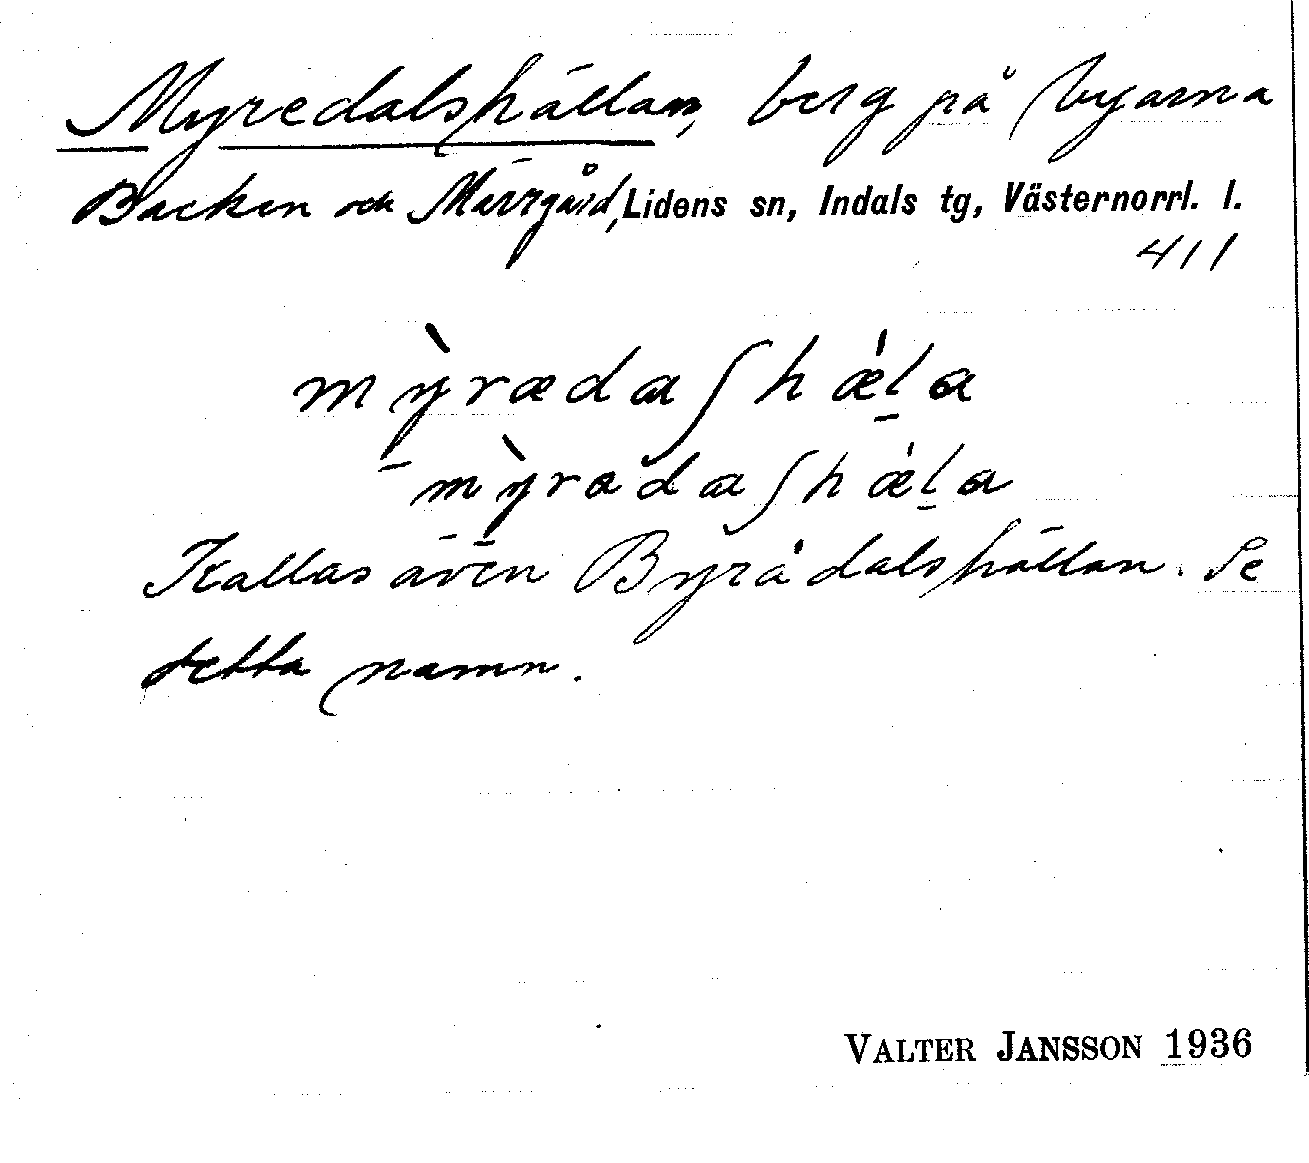 Myredalshällan, berg på byarna
Backen och Märrgård, Lidens sn, Indals tg, Västernorrl. l.
411
mỳrædaʃhæ̀la
mỳradaʃhæ̀la
Kallas även Byrådalshällan. Se
detta namn.
VALTER JANSSON 1936